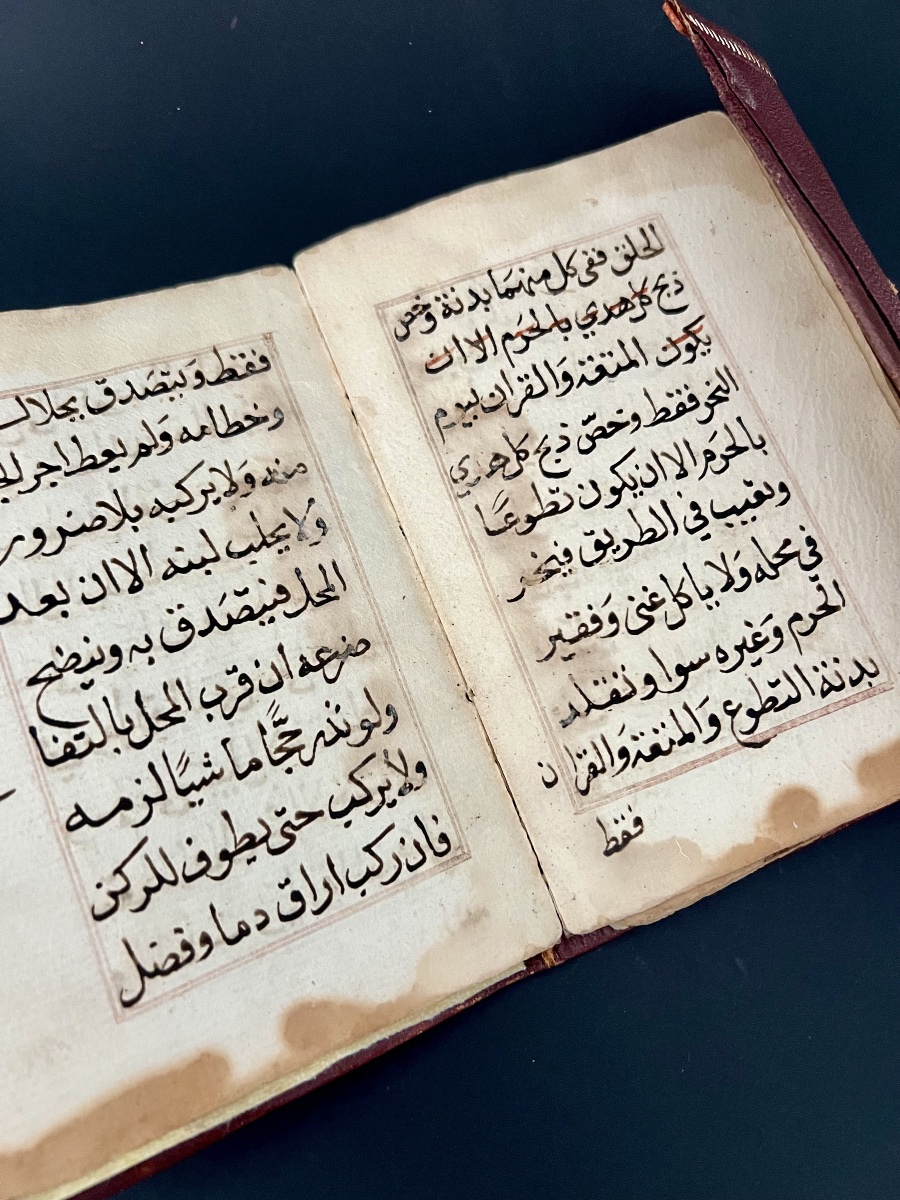 الحلق ففى كل منهما بدنة وخص
ذبح كل هدي بالحرم الا ان
يكون المتعة والقران بيوم
النحر فقط وخصّ ذبح كل هدي
بالحرم الا ان يكون تطوعًا
وتعيب في الطريق فينحر
في محله ولا ياكل غنى وفقير
الحرم وغيره سوا وتقلد
بدنة التطوع والمتعة والقران
فقط
فقط ويتصدق بجلال
وخطامه ولم يعط اجر
منه ولا يركبه بلا ضرور
ولا يحلب لبنه الا ان بعد
المحل فيتصدق به وينضح
ضرعه ان قرب المحل بالنقا
ولو نذر حجًّا ماشيًا لزمه
ولا يركب حتى يطوف للركن
فان ركب اراق دما وفضل